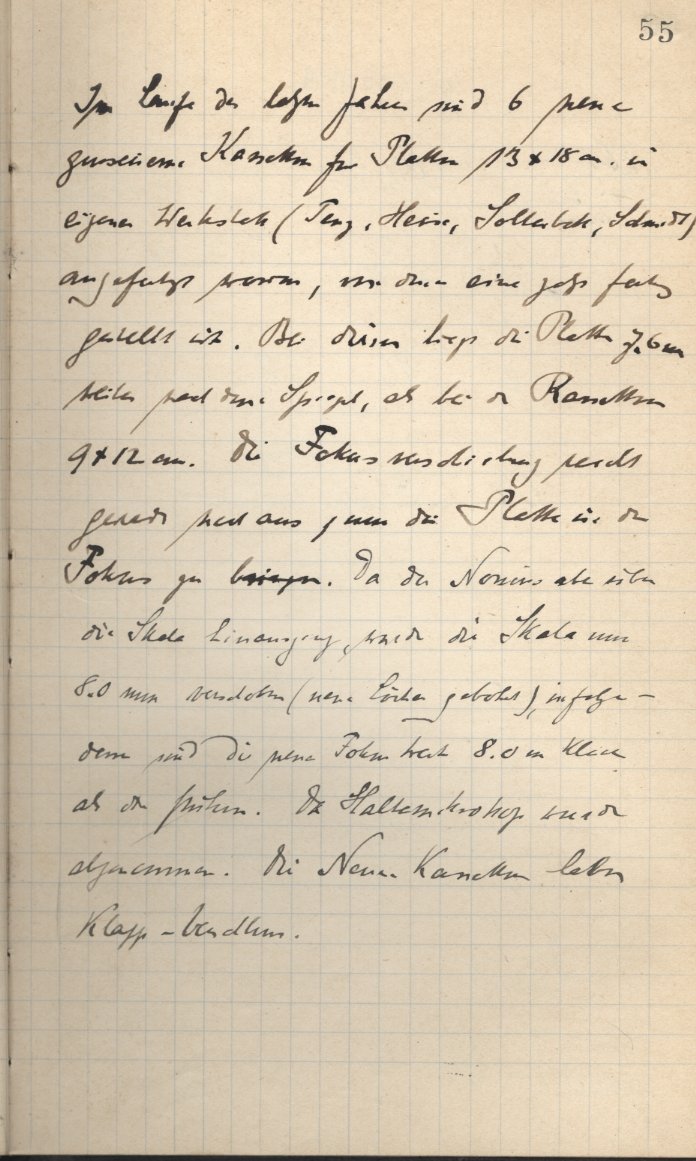 55
Im Laufe der letzten Jahren sind 6 neue
Kassetten für Platten 13 x 18 cm. in
eigener Werkstatt (Heise, Schmidt)
angefertigt worden, von denen eine jetzt fertig
gestellt ist. Bei diesen liegt die Platte 7.6 mm
weiter nach dem Spiegel, als bei den Kassetten
9 x 12 cm. Die Fokusverschiebung reicht
gerade noch aus, um die Platte in den
Fokus zu bringen. Da der Nonius aber über
die Skala hinausging, wurde die Skala um
8.0 mm verschoben (neue Löcher gebohrt), infolge-
dessen sind die neuen Fokus 8.0 mm
als die früheren. Das wurde
abgenommen. Die Neuen Kassetten haben
Klapp-